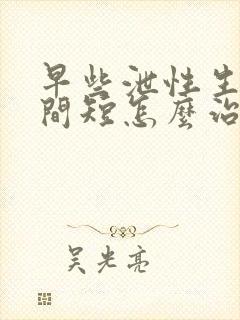 早些泄性生
間短怎麼治
吴光亮